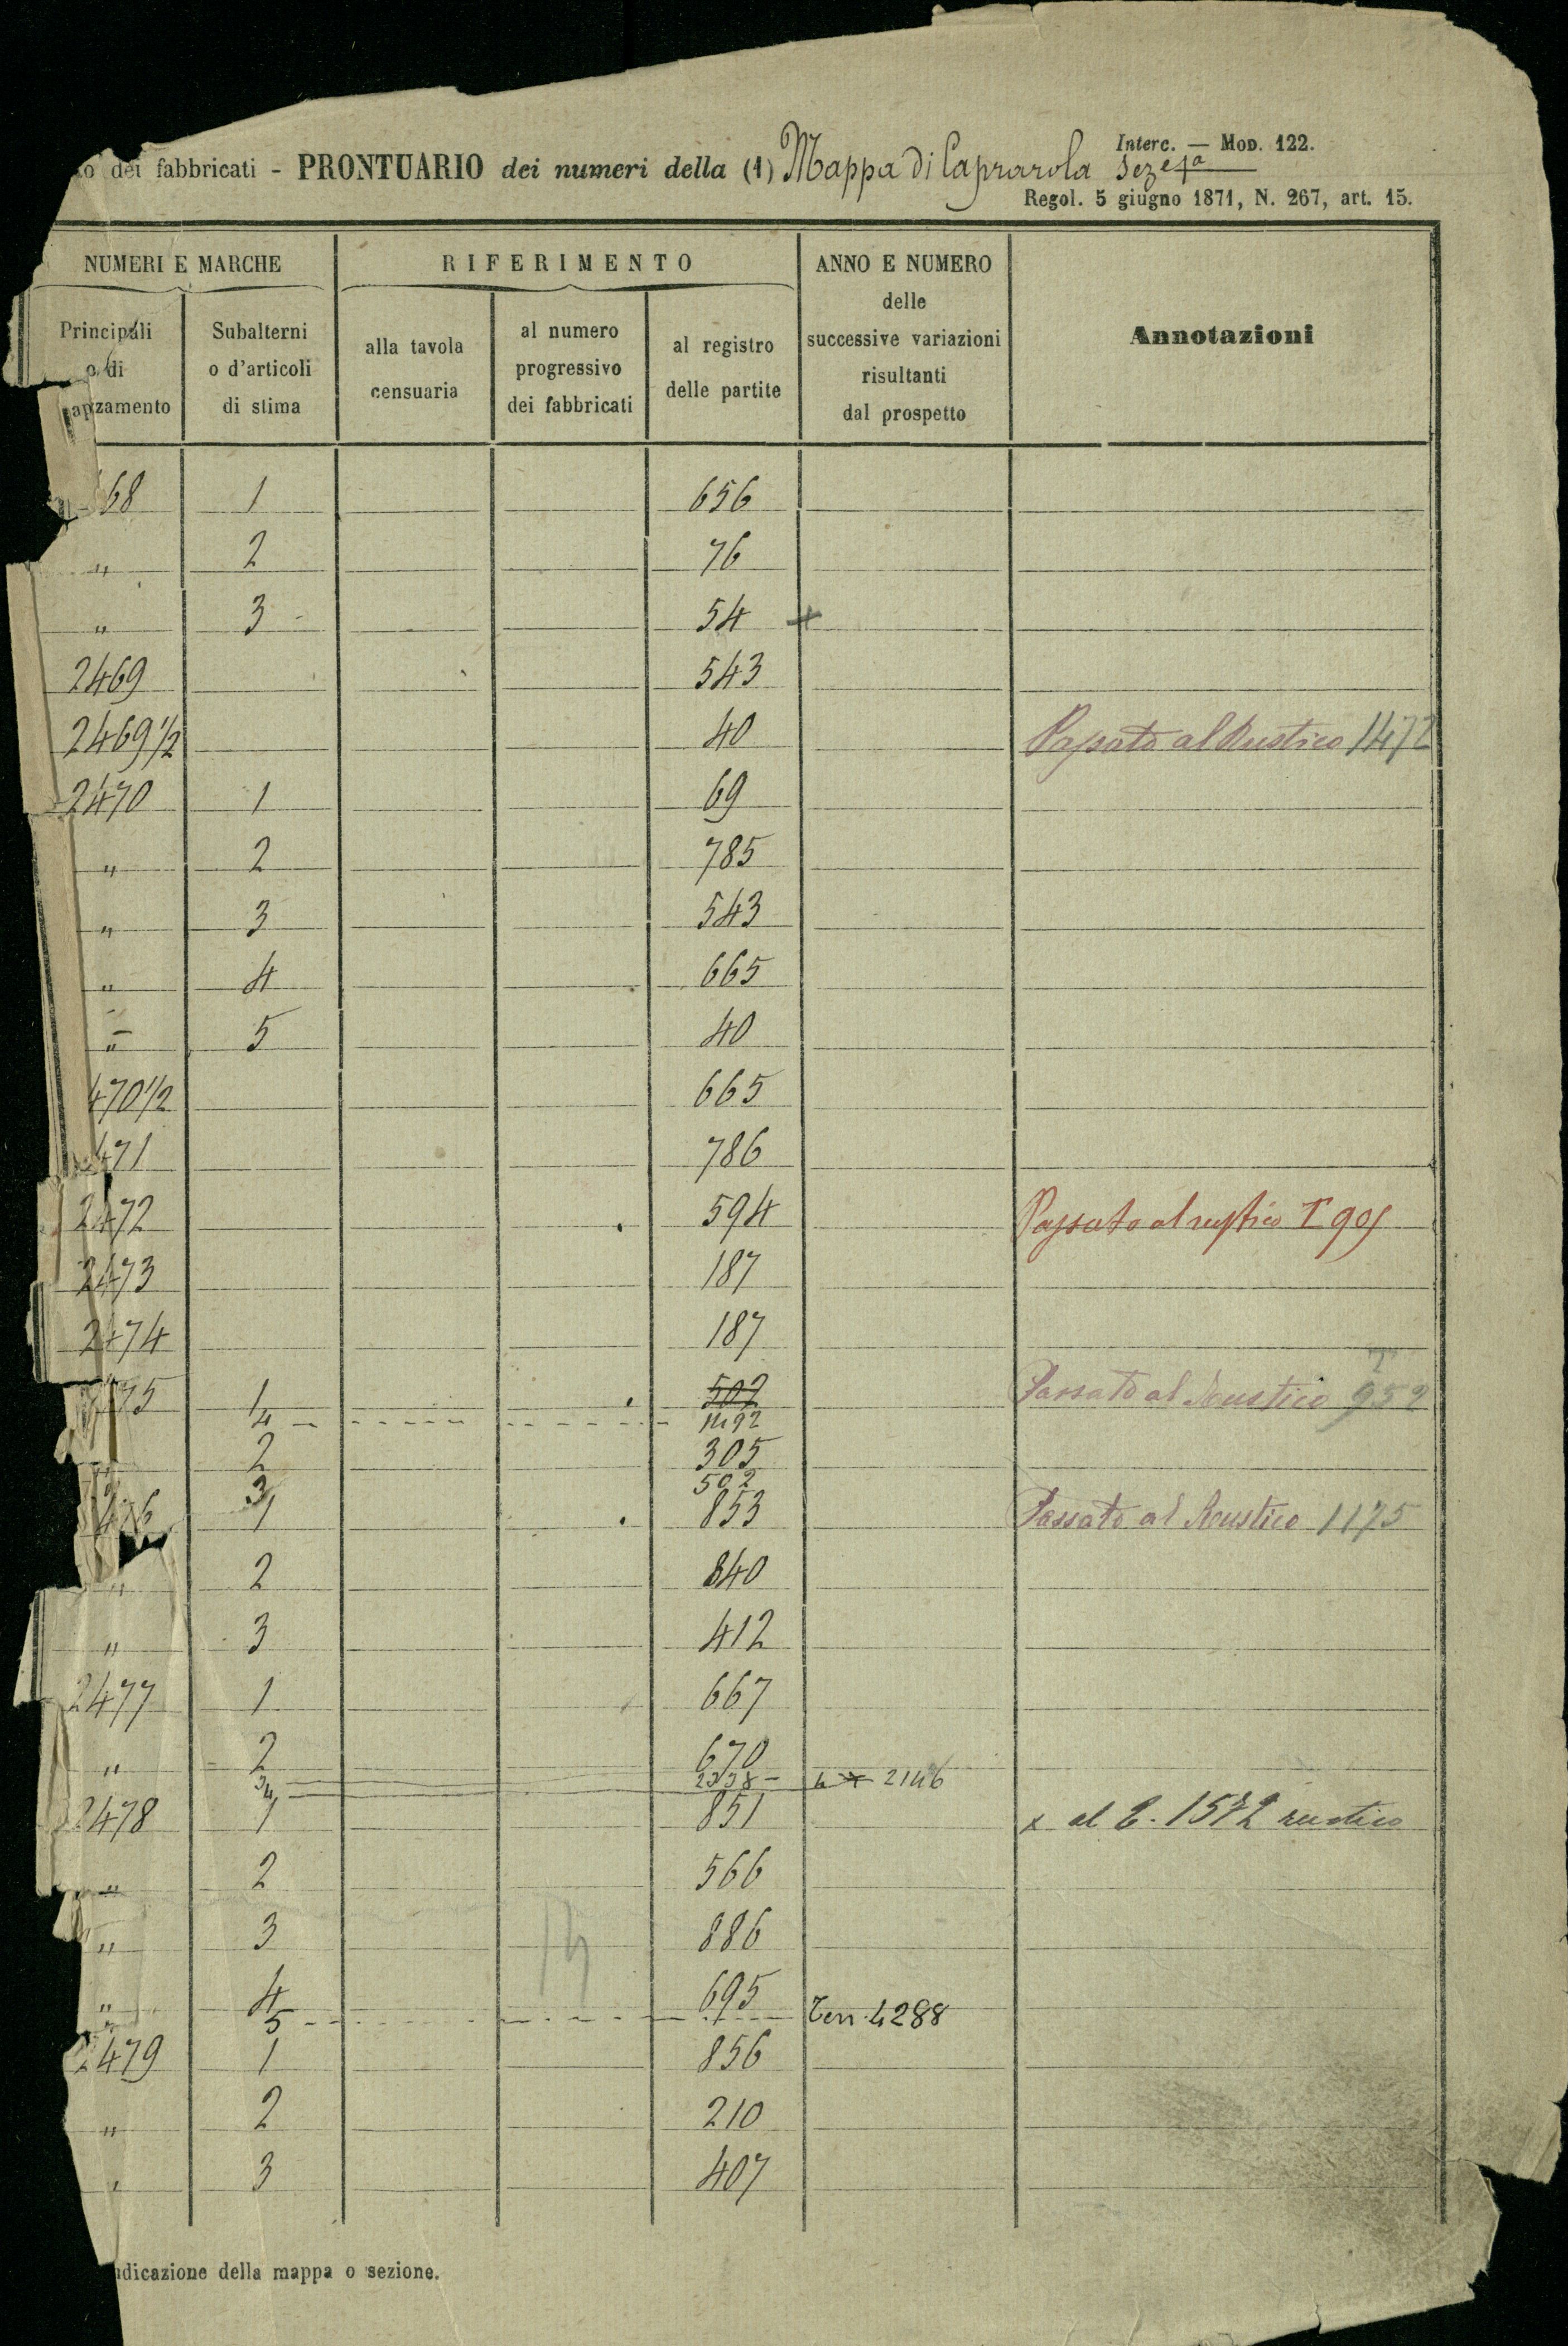 dei fabbricati - PRONTUARIO dei numeri della (1) Mappa di Caprarola Seze 1ª
Interc. — Mod. 122.
Regol. 5 giugno 1871, N. 267, art. 15.
NUMERI E MARCHE
RIFERIMENTO
ANNO E NUMERO delle successive variazioni risultanti dal prospetto
Annotazioni
Principali o di
Subalterni o d'articoli di stima
alla tavola censuaria
al numero progressivo dei fabbricati
al registro delle partite
68 1 656
" 2 76
" 3 54 +
2469 543
2469 1/2 40 Passato al Rustico 1472
2470 1 69
" 2 785
" 3 543
" 4 665
" 5 40
470 1/2 665
471 786
2472 594 Passato al rustico T 905
2473 187
2474 187
75 1 502 Passato al Rustico T 952
4 1492
2 305
3 502
476 1 853 Passato al Rustico 1175
" 2 840
" 3 412
2477 1 667
" 2 670
3 2338 -
4 x 2146
2478 1 851 x al T. 1572 rustico
" 2 566
" 3 886
14
" 4 695
" 5 Terr. 4288
2479 1 856
" 2 210
" 3 407
della mappa o sezione.